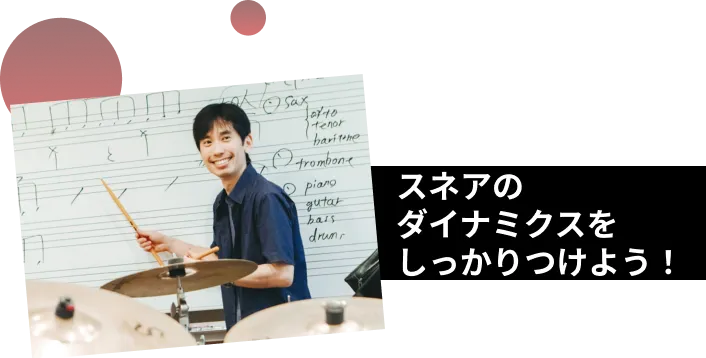 sax
alto
tenor
baritone
trombone
piano
guitar
bass
drums
と
スネアの
ダイナミクスを
しっかりつけよう！